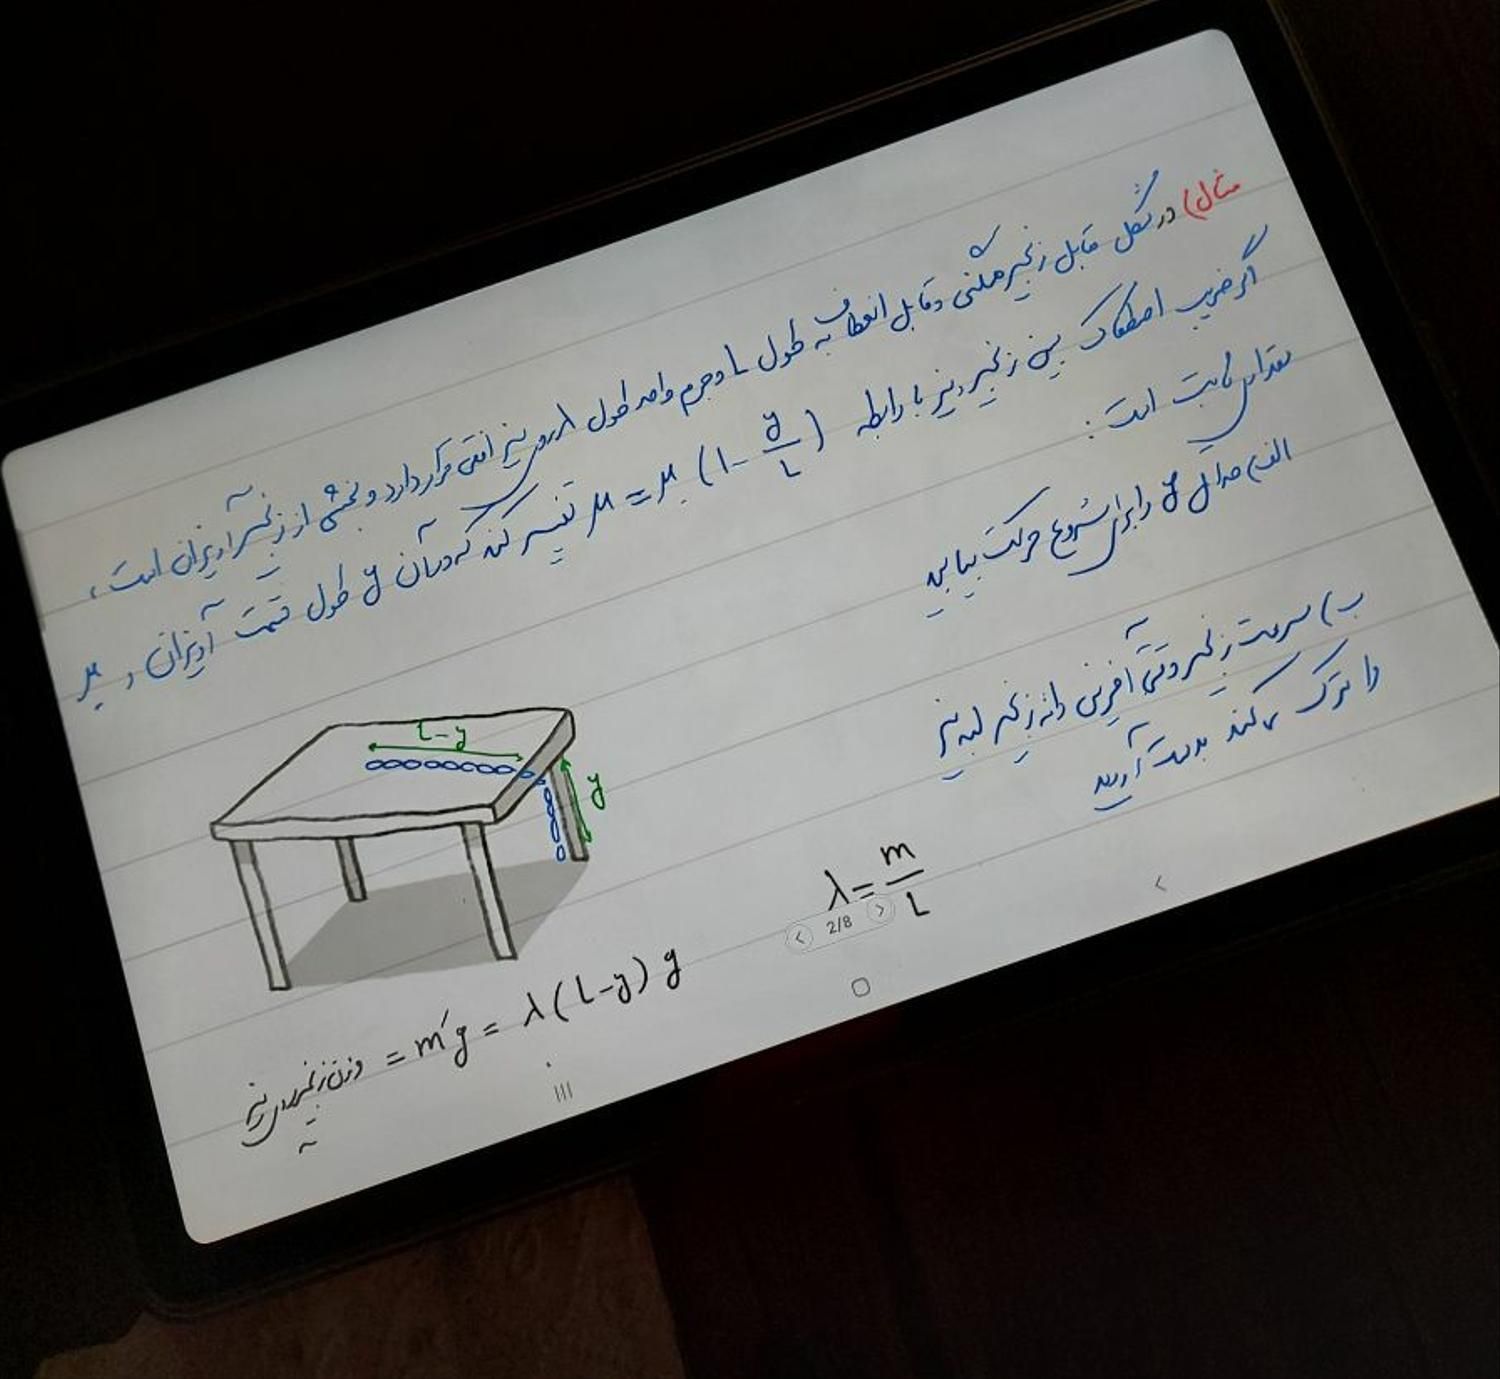 مثال) در شکل مقابل زنجیر همگنی و قابل انعطاف به طول L و جرم واحد طول λ روی میز افقی قرار دارد و بخشی از زنجیر آویزان است،
اگر ضریب اصطکاک بین زنجیر و میز با رابطه μ = μ₀ (1 - y/L) تغییر کند که در آن y طول قسمت آویزان و μ₀
مقداری ثابت است:
الف) حداقل y را برای شروع حرکت بیابید
ب) سرعت زنجیر وقتی آخرین دانه زنجیر لبه میز
را ترک میکند بدست آورید
L-y
y
λ = m/L
2/8
وزن زنجیر روی میز = m'g = λ(L-y)g